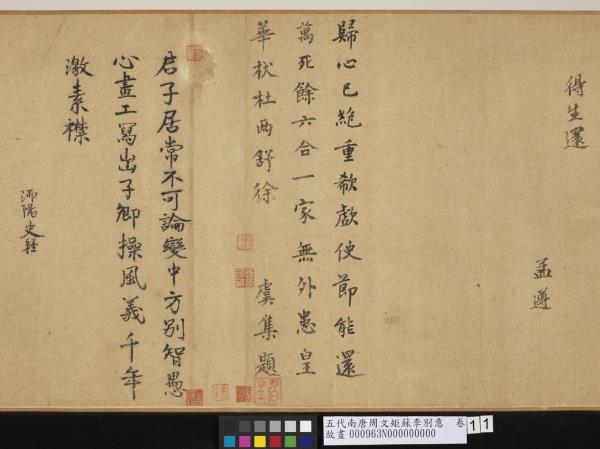 得生還
孟遵
歸心已絶重欷歔使節能還
萬死餘六合一家無外患皇
華杕杜两舒徐
虞集題
君子居常不可論變中方別智愚
心畫工寫出子卿操風義千年
激素襟
沛陽史
五代南唐周文矩蘇李別意 卷
故畫 000963N000000000
11